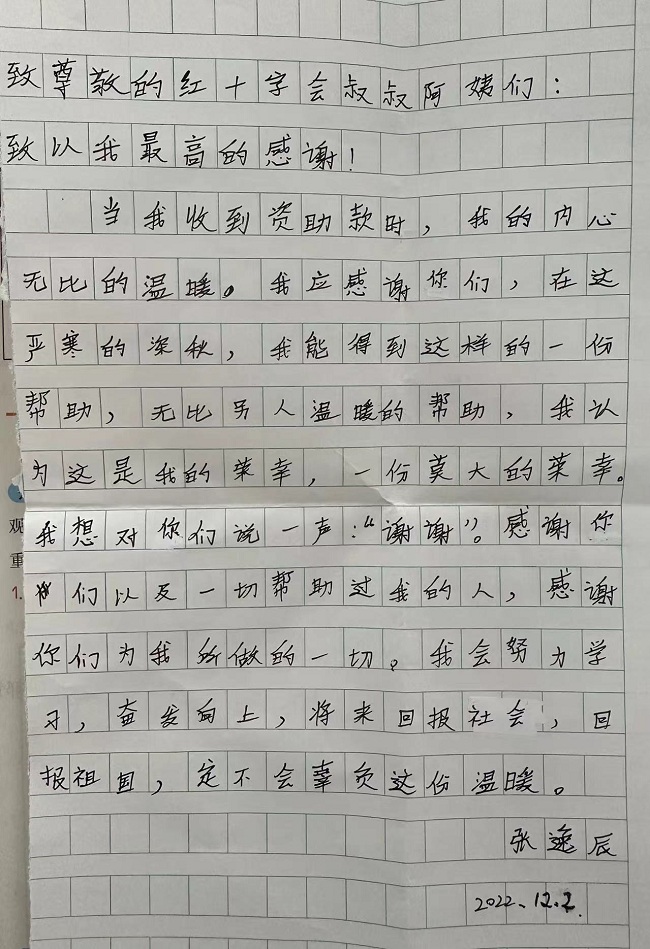 致尊敬的红十字会叔叔阿姨们：
致以我最高的感谢！
当我收到资助款时，我的内心
无比的温暖。我应感谢你们，在这
严寒的深秋，我能得到这样的一份
帮助，无比另人温暖的帮助，我认
为这是我的荣幸，一份莫大的荣幸。
我想对你们说一声：“谢谢”。感谢你
们以及一切帮助过我的人，感谢
你们为我所做的一切。我会努力学
习，奋发向上，将来回报社会，回
报祖国，定不会辜负这份温暖。
张逸辰
2022.12.2
观
重
1.